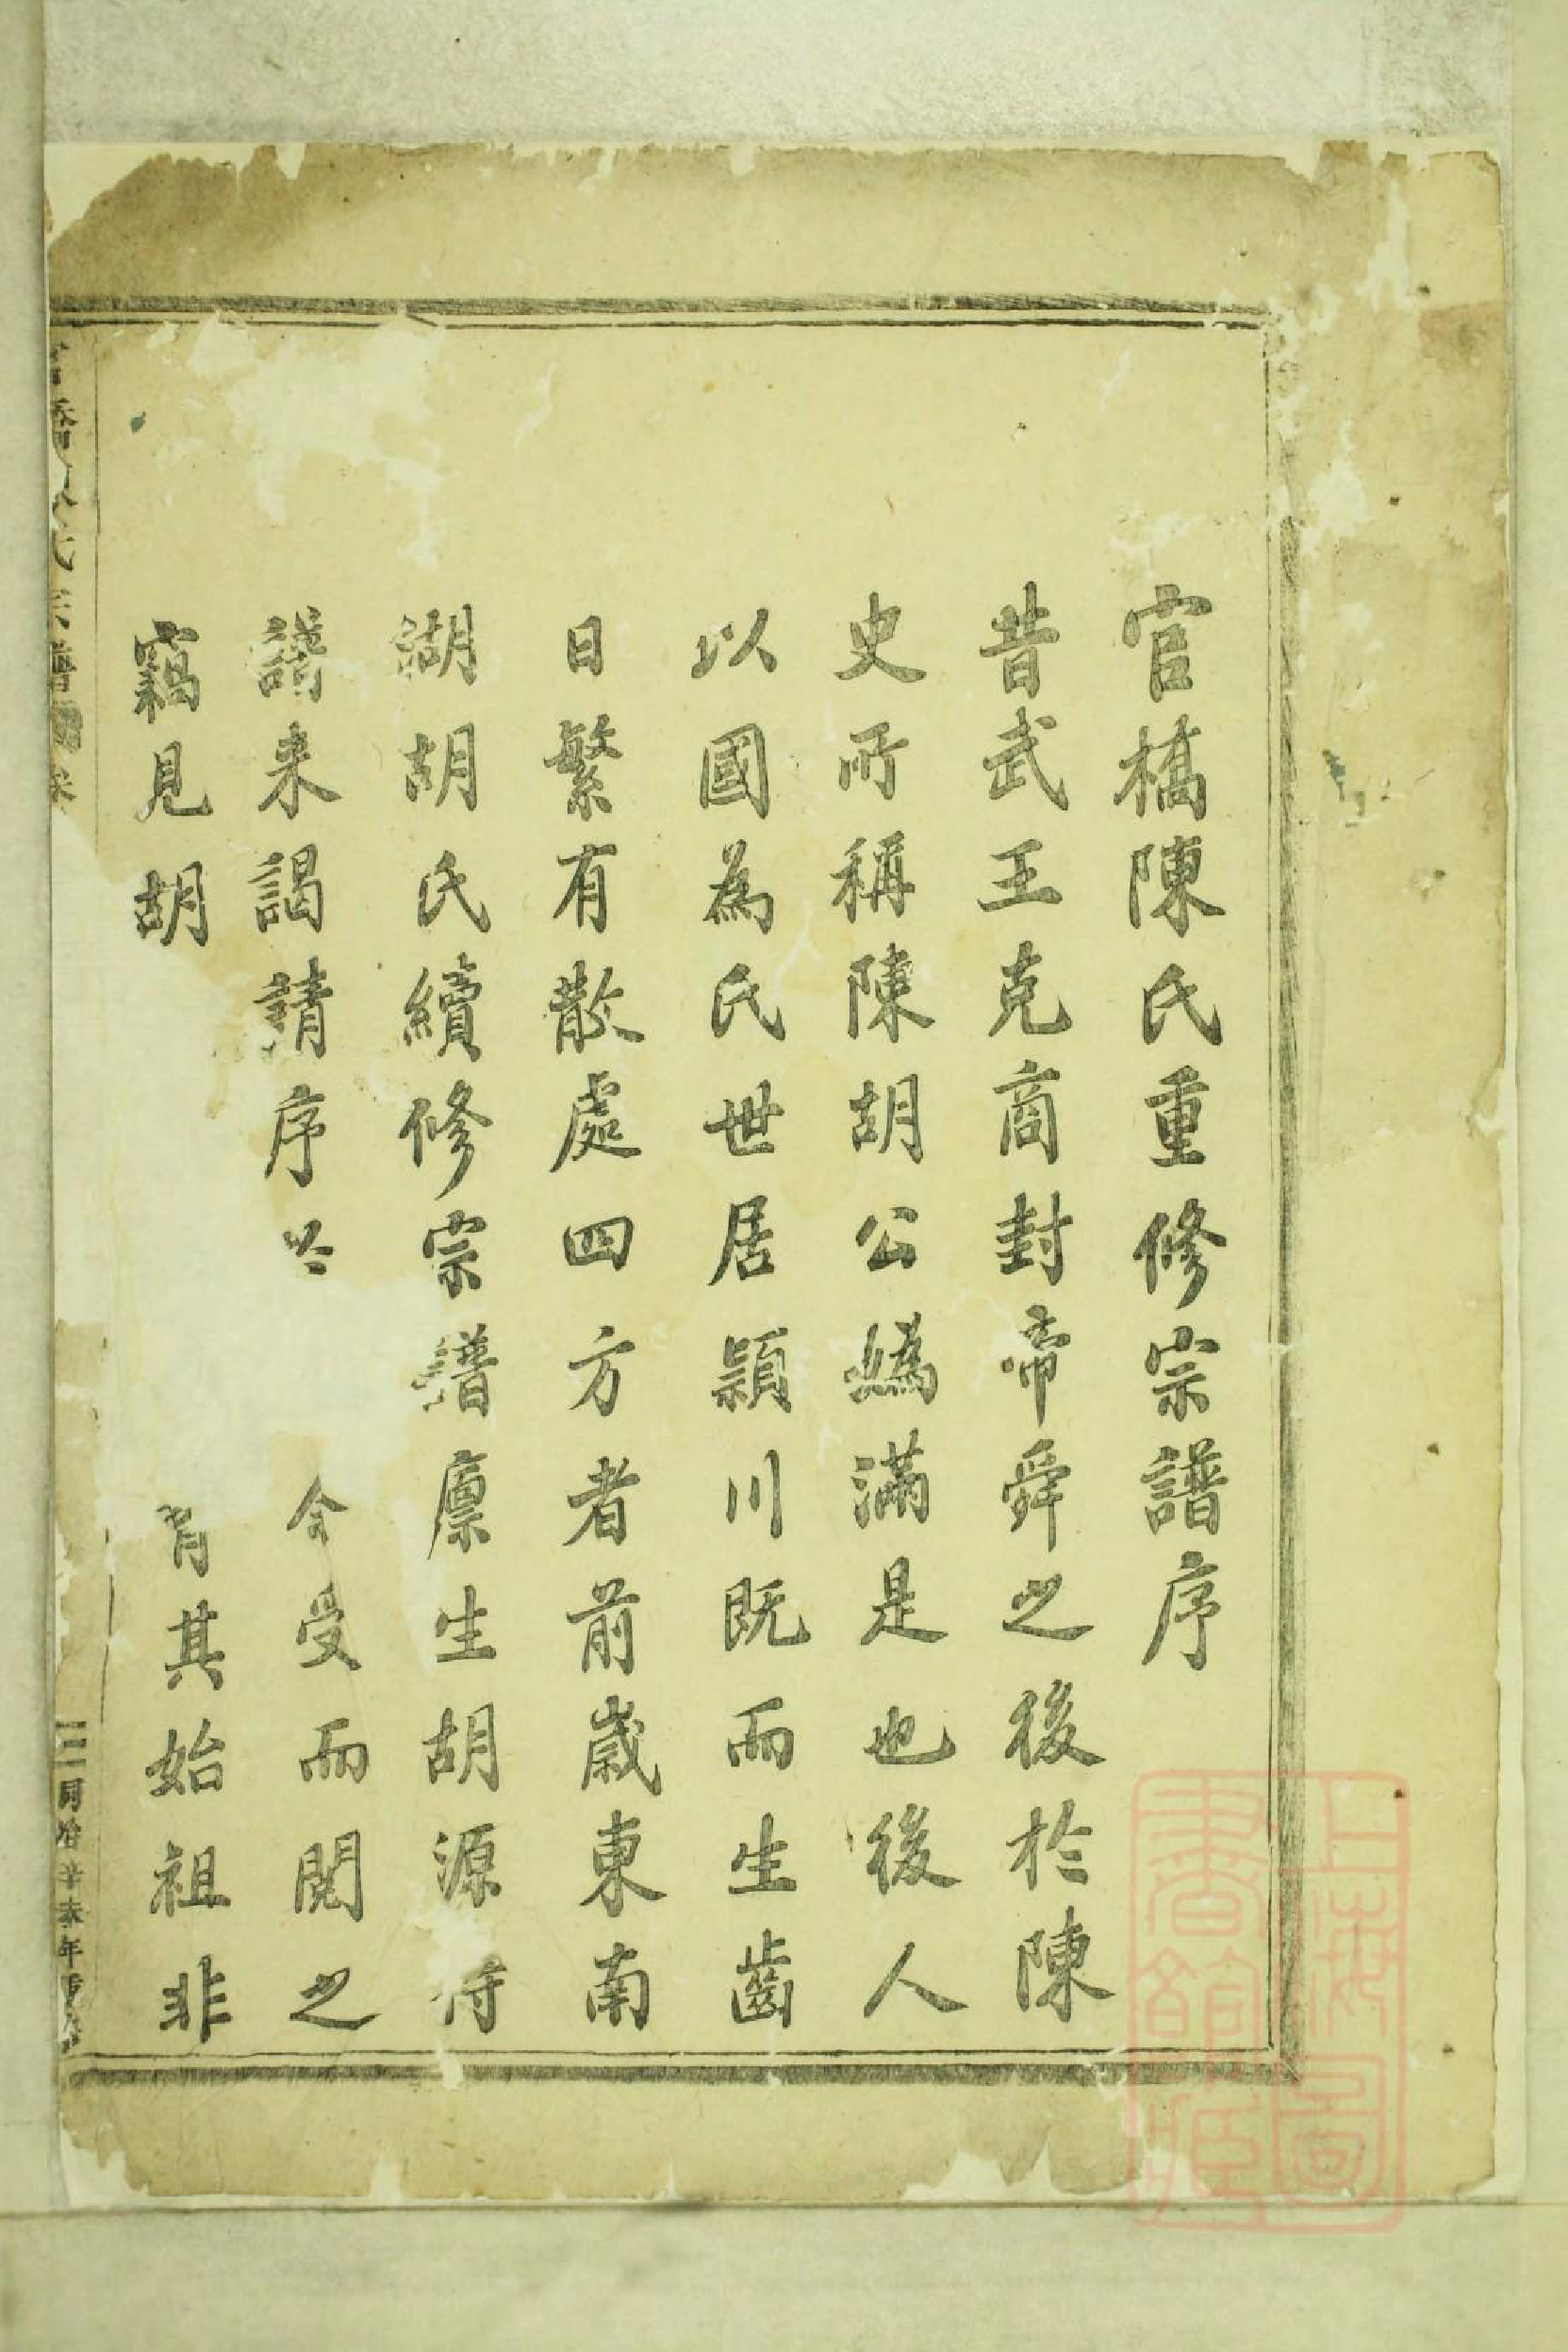 官橋陳氏重修宗譜序
昔武王克商封帝舜之後於陳
史所稱陳胡公媯滿是也後人
以國為氏世居潁川既而生齒
日繁有散處四方者前歲東南
湖胡氏續修宗譜廪生胡源持
譜来謁請序今受而閱之
竊見胡其始祖非
同治辛未年重修
上海圖書館藏